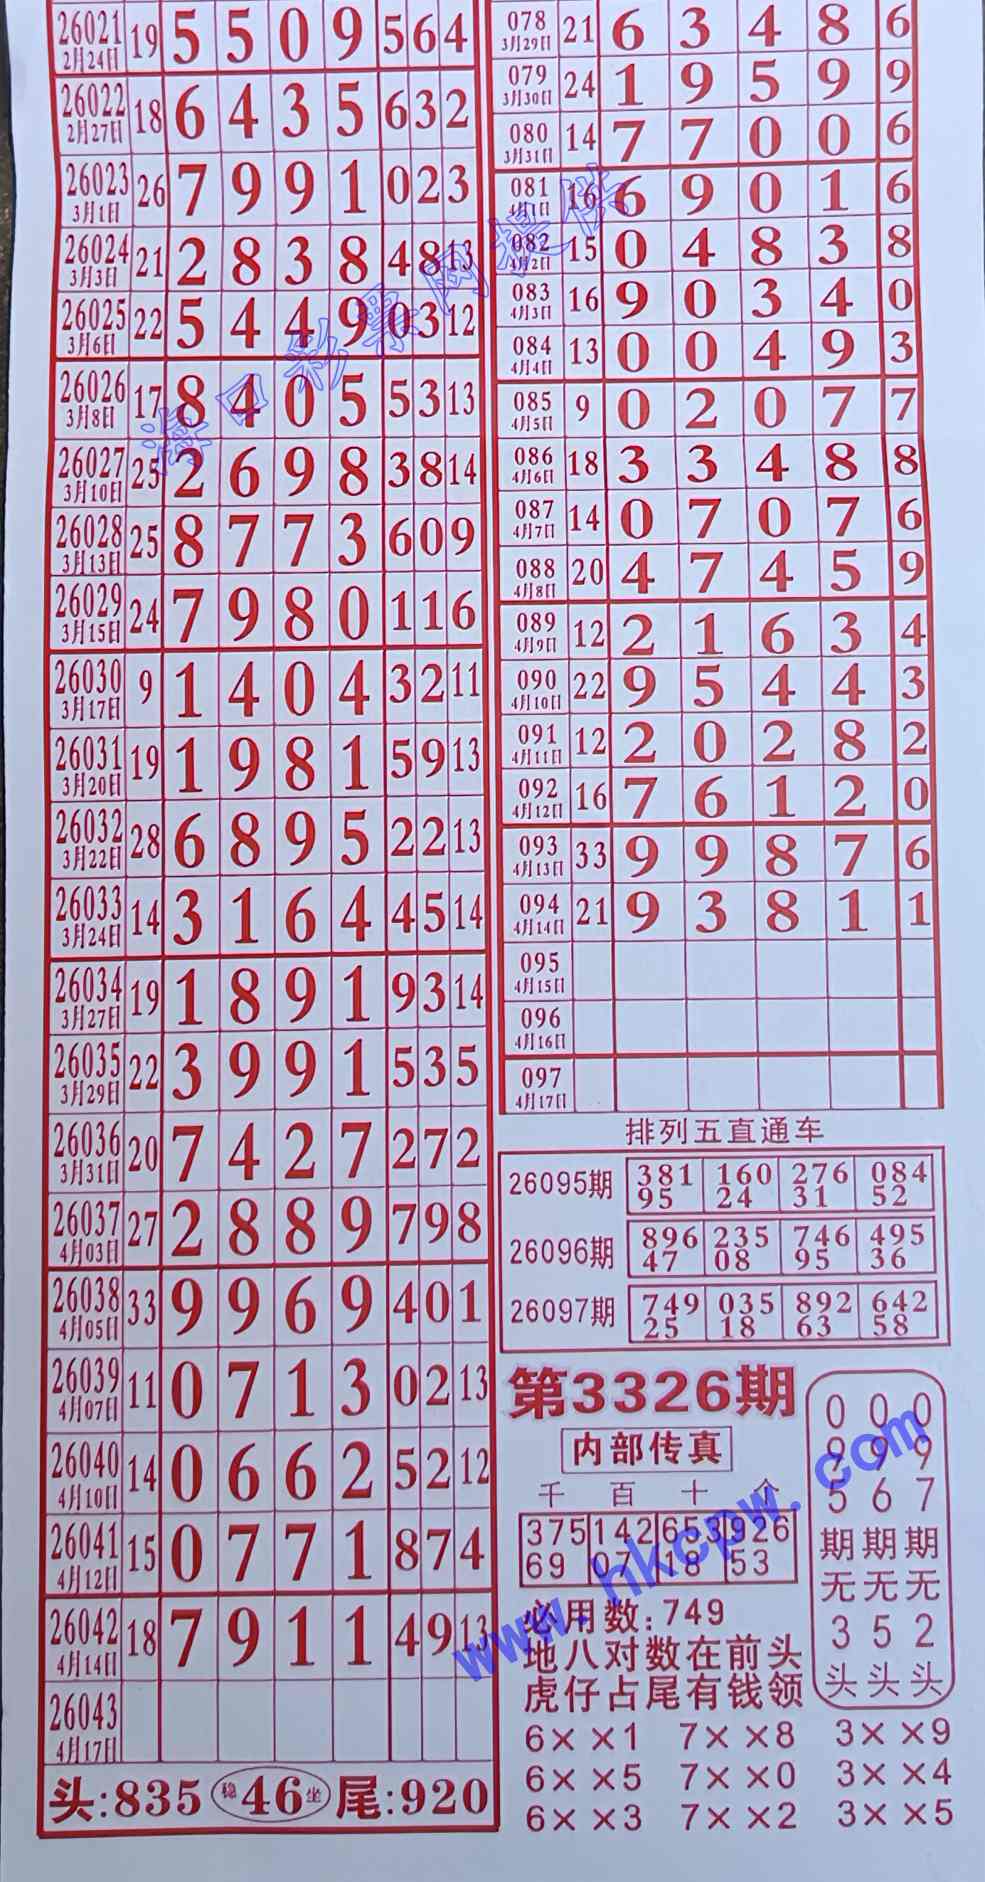 26021 19 5 5 0 9 5 6 4
2月24日
26022 18 6 4 3 5 6 3 2
2月27日
26023 26 7 9 9 1 0 2 3
3月1日
26024 21 2 8 3 8 4 8 13
3月3日
26025 22 5 4 4 9 0 3 12
3月6日
26026 17 8 4 0 5 5 3 13
3月8日
26027 25 2 6 9 8 3 8 14
3月10日
26028 25 8 7 7 3 6 0 9
3月13日
26029 24 7 9 8 0 1 1 6
3月15日
26030 9 1 4 0 4 3 2 11
3月17日
26031 19 1 9 8 1 5 9 13
3月20日
26032 28 6 8 9 5 2 2 13
3月22日
26033 14 3 1 6 4 4 5 14
3月24日
26034 19 1 8 9 1 9 3 14
3月27日
26035 22 3 9 9 1 5 3 5
3月29日
26036 20 7 4 2 7 2 7 2
3月31日
26037 27 2 8 8 9 7 9 8
4月03日
26038 33 9 9 6 9 4 0 1
4月05日
26039 11 0 7 1 3 0 2 13
4月07日
26040 14 0 6 6 2 5 2 12
4月10日
26041 15 0 7 7 1 8 7 4
4月12日
26042 18 7 9 1 1 4 9 13
4月14日
26043
4月17日
头:835 稳 46 坐 尾:920
078 21 6 3 4 8 6
3月29日
079 24 1 9 5 9 9
3月30日
080 14 7 7 0 0 6
3月31日
081 16 6 9 0 1 6
4月1日
082 15 0 4 8 3 8
4月2日
083 16 9 0 3 4 0
4月3日
084 13 0 0 4 9 3
4月4日
085 9 0 2 0 7 7
4月5日
086 18 3 3 4 8 8
4月6日
087 14 0 7 0 7 6
4月7日
088 20 4 7 4 5 9
4月8日
089 12 2 1 6 3 4
4月9日
090 22 9 5 4 4 3
4月10日
091 12 2 0 2 8 2
4月11日
092 16 7 6 1 2 0
4月12日
093 33 9 9 8 7 6
4月13日
094 21 9 3 8 1 1
4月14日
095
4月15日
096
4月16日
097
4月17日
排列五直通车
26095期 381 160 276 084
95 24 31 52
26096期 896 235 746 495
47 08 95 36
26097期 749 035 892 642
25 18 63 58
第3326期
内部传真
千 百 十 个
375 142 653 926
69 07 18 53
必用数:749
地八对数在前头
虎仔占尾有钱领
0 0 0
9 9 9
5 6 7
期 期 期
无 无 无
3 5 2
头 头 头
6××1 7××8 3××9
6××5 7××0 3××4
6××3 7××2 3××5
海口彩票网提供
www.hkcpw.com